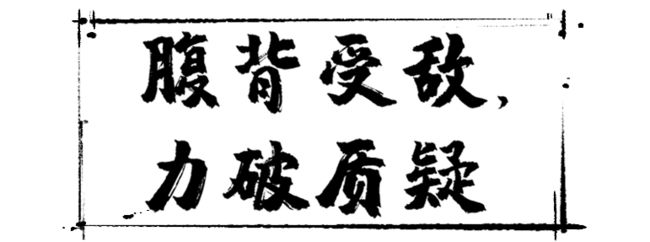 腹背受敌,
力破质疑